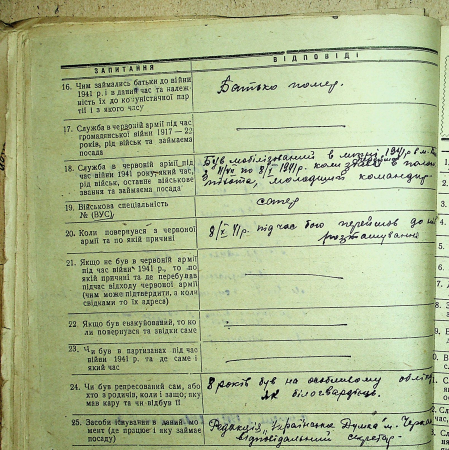 ЗАПИТАННЯ
ВІДПОВІДІ
16. Чим займались батьки до війни
1941 р. і в даний час та належ-
ність їх до комуністичної пар-
тії і з якого часу
Батько помер.
17. Служба в червоній армії під час
громадянської війни 1917 — 22
років, рід військ та займаєма
посада
18. Служба в червоній армії під
час війни 1941 року, який час,
рід військ, останнє військове
звання та займаєма посада
Був мобілізований в липні 1941 р. в м.
по 8/X 1941 р. коли в полон
піхота, молодший командир
19. Військова спеціальність
№ (ВУС)
сапер
20. Коли повернувся з червоної
армії та по якій причині
8/X 41 р. під час бою перейшов до
розташування
21. Якщо не був в червоній армії
під час війни 1941 р., то по
якій причині та де перебував
підчас відходу червоної армії
(чим може підтвердити, а коли
свідками то їх адреса)
22. Якщо був евакуйований, то ко-
ли повернувся та звідки саме
23. Чи був в партизанах під час
війни 1941 та де саме і
який час
24. Чи був репресований сам, або
хто з родичів, коли і защо, яку
мав кару та чи відбув її
8 років був на особливому обліку
як білогвардієць.
25. Засоби існування в даний мо-
мент (де працює і яку займає
посаду)
Редакція „Українська Думка" м.
відповідальний секретар